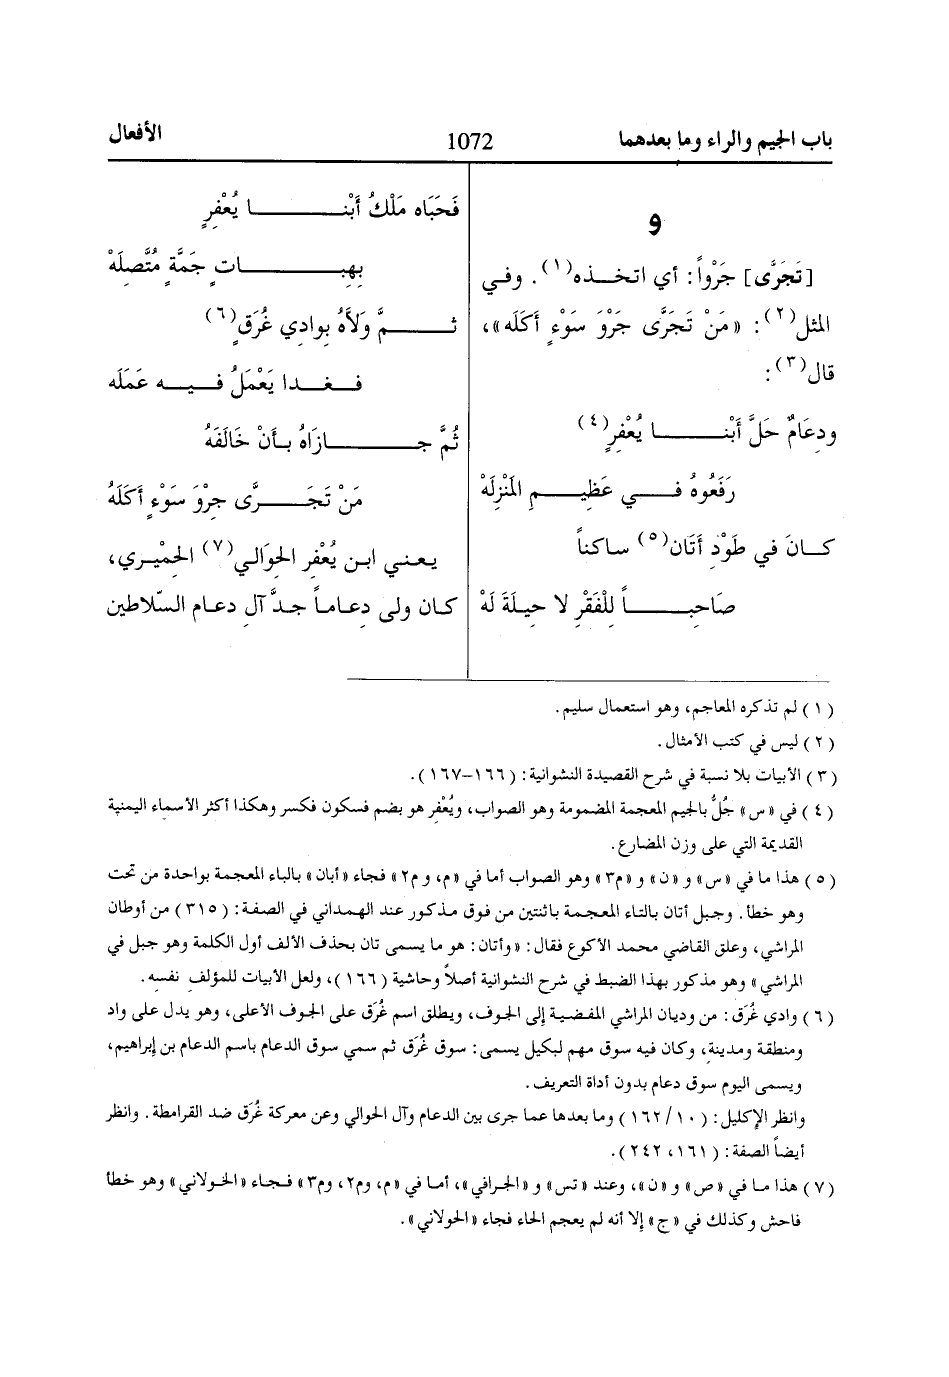 باب الجيم والراء وما بعدهما 1072 الأفعال
و
[تَجَرَّى] جَرْواً: أي اتخـــذه(١). وفي
المثل(٢): «مَنْ تَجَرَّى جَرْوَ سَوْءٍ أَكَلَه»،
قال(٣):
ودِعَامٌ حَلَّ أَبْنـــا يُعْفِرٍ(٤)
رَفَعُوهُ فـــي عَظِيـــمِ المَنْزِلَهْ
كـــانَ في طَوْدِ أَتَان(٥) ساكناً
صَاحِبـــاً لِلْفَقْرِ لا حيلَةَ لَهْ
فَحَبَاه مَلْكُ أَبْنـــا يُعْفِرٍ
بِهِبـــاتٍ جَمَّةٍ مُتَّصِلَهْ
ثـــمَّ وَلاَّهُ بوادي غُرَقٍ(٦)
فـــغـــدا يَعْمَلُ فـــيـــه عَمَلَه
ثُمَّ جـــازَاهُ بـأَنْ خَالَفَهُ
مَنْ تَجَـــرَّى جِرْوَ سَوْءٍ أَكَلَهُ
يعـني ابـن يُعْفِر الحِوَالي(٧) الحِمْيَري،
كـان ولى دِعـامـاً جـدَّ آلِ دعام السّلاطين
(١) لم تذكره المعاجم، وهو استعمال سليم.
(٢) ليس في كتب الأمثال.
(٣) الأبيات بلا نسبة في شرح القصيدة النشوانية: (١٦٦-١٦٧).
(٤) في «س» جُلُّ بالجيم المعجمة المضمومة وهو الصواب، ويُعْفِر هو بضم فسكون فكسر وهكذا أكثر الأسماء اليمنية
القديمة التي على وزن المضارع.
(٥) هذا ما في «س» و «ن» و «م٣» وهو الصواب أما في «م، و م٢» فجاء «أبان» بالباء المعجمة بواحدة من تحت
وهو خطأ. وجبل أتان بالتاء المعجمة باثنتين من فوق مذكور عند الهمداني في الصفة: (٣١٥) من أوطان
المراشي، وعلق القاضي محمد الأكوع فقال: «وأتان: هو ما يسمى تان بحذف الألف أول الكلمة وهو جبل في
المراشي» وهو مذكور بهذا الضبط في شرح النشوانية أصلاً وحاشية (١٦٦)، ولعل الأبيات للمؤلف نفسه.
(٦) وادي غُرَق: من وديان المراشي المفضية إلى الجوف، ويطلق اسم غُرَق على الجوف الأعلى، وهو يدل على واد
ومنطقة ومدينة، وكان فيه سوق مهم لبكيل يسمى: سوق غُرَق ثم سمي سوق الدعام باسم الدعام بن إبراهيم،
ويسمى اليوم سوق دعام بدون أداة التعريف.
وانظر الإكليل: (١٠/١٦٢) وما بعدها عما جرى بين الدعام وآل الحوالي وعن معركة غُرَق ضد القرامطة. وانظر
أيضاً الصفة: (١٦١، ٢٤٢).
(٧) هذا مـا في «ص» و «ن»، وعند «تس» و «الجرافي»، أمـا في «م، وم٢، وم٣» فـجـاء «الخـولاني» وهو خطأ
فاحش وكذلك في «ج» إلا أنه لم يعجم الحاء فجاء «الحولاني».